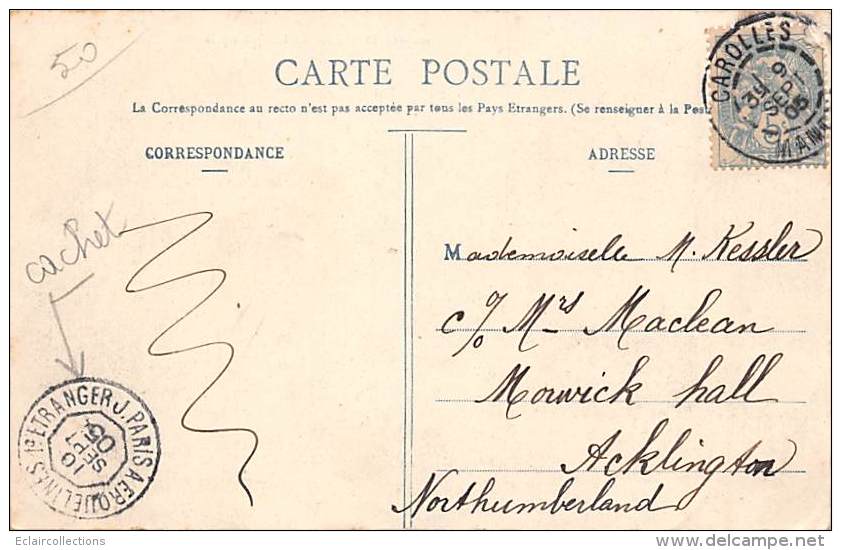 50
CAROLLES
MANCHE
CARTE POSTALE
La Correspondance au recto n'est pas acceptée par tous les Pays Etrangers. (Se renseigner à la Post
CORRESPONDANCE
ADRESSE
cachet
Mademoiselle M. Kessler
c/o Mrs Maclean
Morwick hall
Acklington
Northumberland
ETRANGER J. PARIS A ERQUELINNES 1º
10
SEPT
05
Eclaircollections
delcampe.net